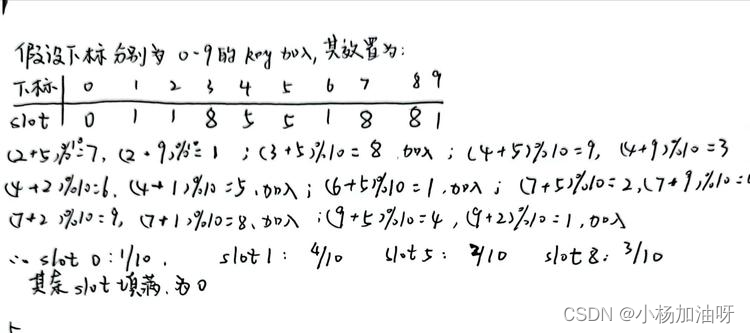 假设下标分别为 0-9 的 key 加入, 其放置为:
下标 0 1 2 3 4 5 6 7 8 9
slot 0 1 1 8 5 5 1 8 8 1
(2+5)%10=7, (2+9)%10=1 ; (3+5)%10=8 加入 ; (4+5)%10=9, (4+9)%10=3
(4+2)%10=6, (4+1)%10=5, 加入 ; (6+5)%10=1, 加入 ; (7+5)%10=2, (7+9)%10=6
(7+2)%10=9, (7+1)%10=8, 加入 ; (9+5)%10=4, (9+2)%10=1, 加入
∴ slot 0: 1/10, slot 1: 4/10 slot 5: 2/10 slot 8: 3/10
其余 slot 填满 为 0
CSDN @小杨加油呀